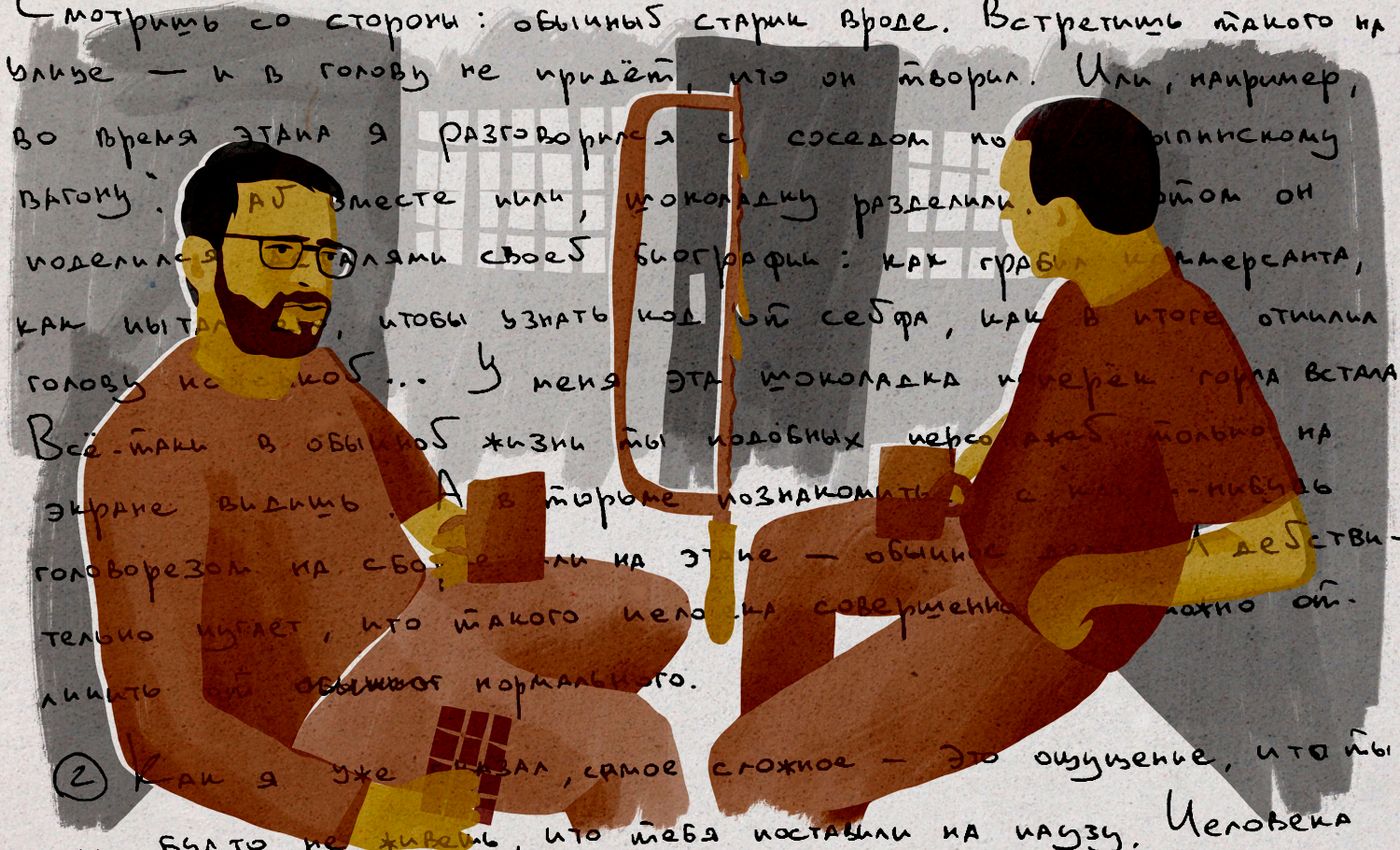 Смотришь со стороны: обычный старик вроде. Встретишь такого на
улице — и в голову не придёт, что он творил. Или, например,
во время этапа я разговорился с соседом по
вагону". вместе пили, шоколадку разделили. он
поделился деталями своей биографии: как грабил коммерсанта,
как пытал его, чтобы узнать код от сейфа, как в итоге отпилил
голову ножовкой... У меня эта шоколадка поперёк горла встала
Всё-таки в обычной жизни ты подобных персонажей только на
экране видишь. А в тюрьме познакомиться с каким-нибудь
головорезом на сборке или на этапе — обычное дело. И действи-
тельно пугает, что такого человека совершенно можно от-
личить от нормального.
② Как я уже сказал, самое сложное — это ощущение, что ты
будто не живёшь, что тебя поставили на паузу. Человека